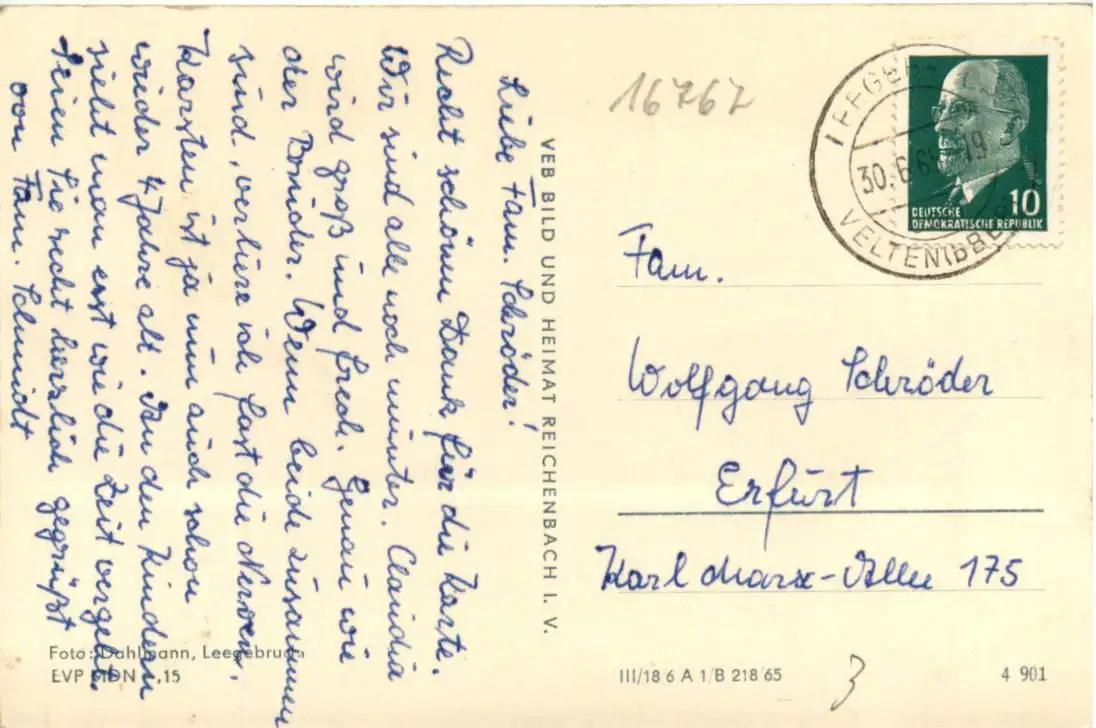 Liebe Fam. Schröder!
Recht schönen Dank für die Karte.
Wir sind alle noch munter. Claudia
wird groß und frech. Genau wie
der Bruder. Wenn beide zusammen
sind, verliere ich fast die Nerven.
Karsten ist ja nun auch schon
wieder 4 Jahre alt. An den Kindern
sieht man erst wie die Zeit vergeht.
Seien Sie recht herzlich gegrüßt
von Fam. Schmidt
Foto: Dahlmann, Leegebruch
EVP MDN ,15
VEB BILD UND HEIMAT REICHENBACH I. V.
16767
LEEGEB
30.6.6 19
VELTEN(BBE
10
DEUTSCHE
DEMOKRATISCHE REPUBLIK
Fam.
Wolfgang Schröder
Erfurt
Karl Marx-Allee 175
III/18 6 A 1/B 218/65
3
4 901